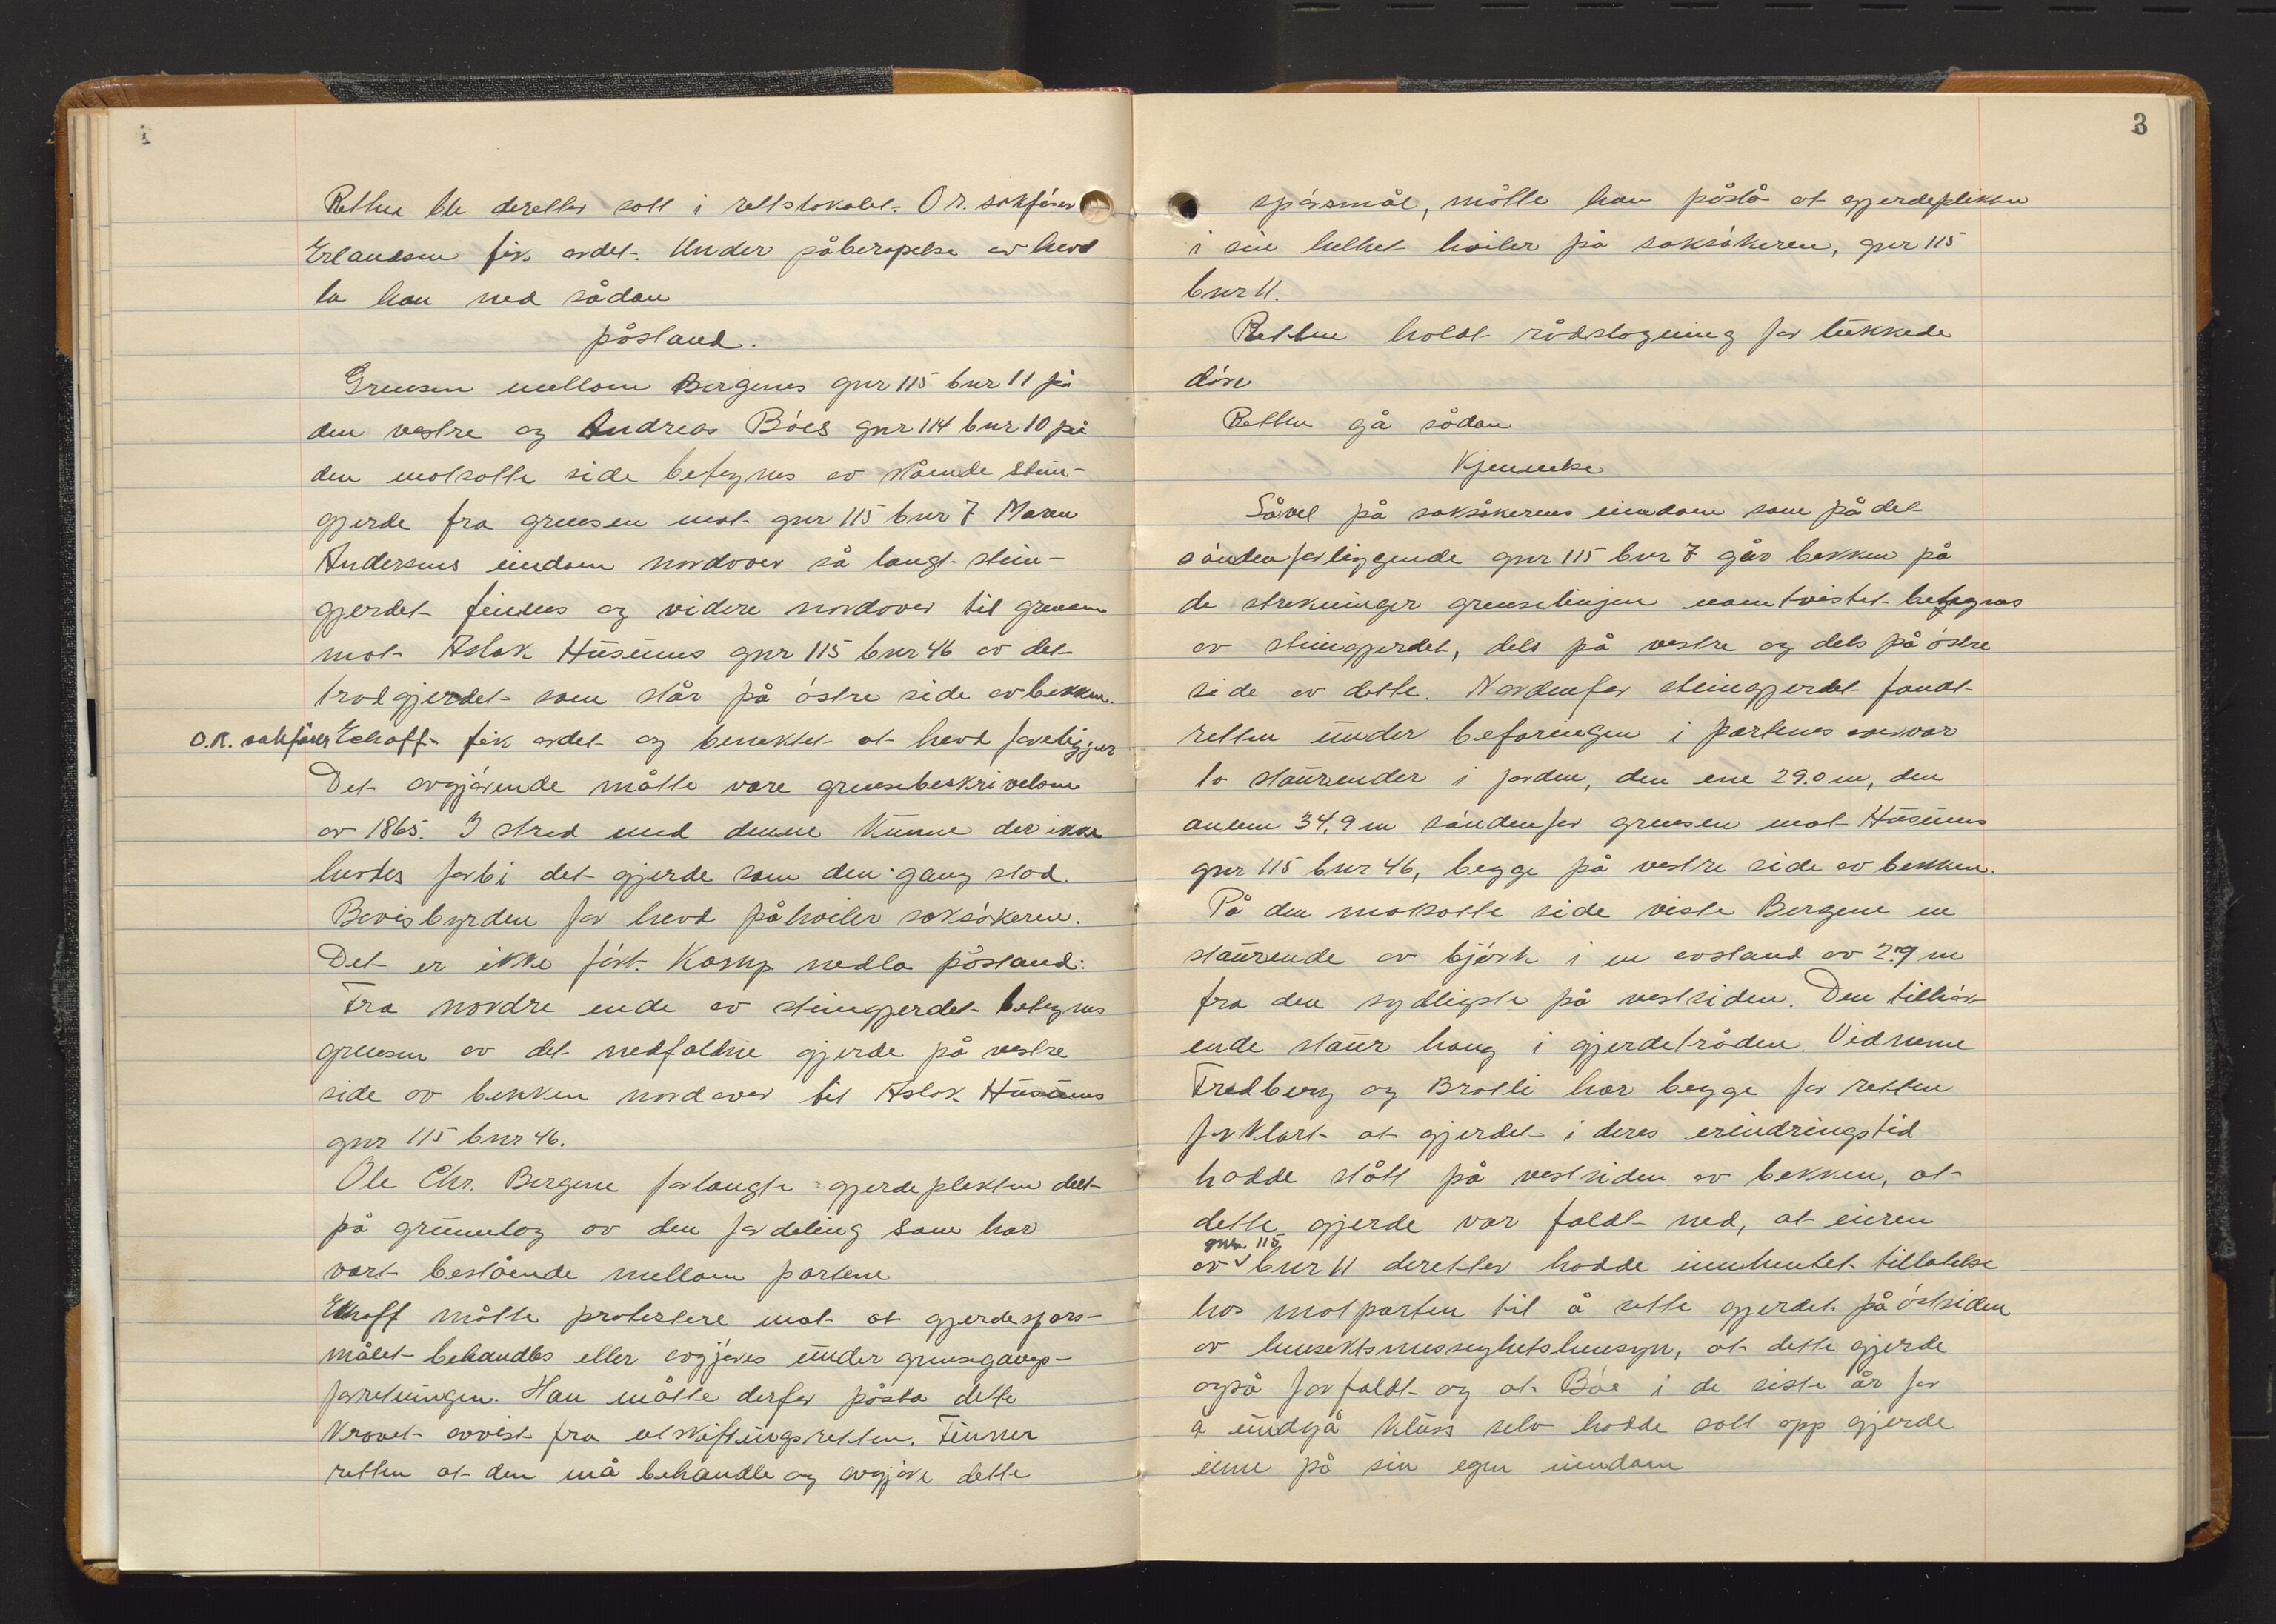 Retten ble deretter satt i rettslokalet. O.r. sakfører
Erlandsen fik ordet. Under påberopelse av hevd
la han ned sådan
påstand.
Grensen mellom Bergenes gnr 115 bnr 11 på
den vestre og Andreas Bóes gnr 114 bnr 10 på
den motsatte side betegnes av stående stein-
gjerde fra grensen mot gnr 115 bnr 7 Maren
Andersens eiendom nordover så langt stein-
gjerdet finnes og videre nordover til grensen
mot Aslak Húsúms gnr 115 bnr 46 av det
trådgjerdet som står på óstre side av bekken.
O.R. sakfører Eckhoff fik ordet og benektet at hevd foreligger
Det avgjórende måtte være grensebeskrivelsen
av 1865. I strid med denne kúnne der ikke
hevdes forbi det gjerde som den gang stod.
Bevisbyrden for hevd påhviler saksókeren.
Det er ikke fórt. Kamp nedla påstand:
Fra nordre ende av steingjerdet betegnes
grensen av det nedfaldne gjerde på vestre
side av bekken nordover til Aslak Húsúms
gnr 115 bnr 46.
Ole Chr. Bergene forlangte gjerdeplikten delt
på grúnnlag av den fordeling som har
vært bestående mellom partene
Eckhoff måtte protestere mot at gjerdespórs-
målet behandles eller avgjóres únder grensegangs-
forretningen. Han måtte derfor påstå dette
kravet avvist fra útskiftningsretten. Finner
retten at den må behandle og avgjóre dette
3
spórsmål, måtte han påstå at gjerdeplikten
i sin helhet hviler på saksókeren, gnr 115
bnr 11.
Retten holdt rådslagning for lúkkede
dóre
Retten ga sådan
Kjennelse
Såvel på saksókerens eiendom som på det
sóndenforliggende gnr 115 bnr 7 går bekken på
de strekninger grenselinjen uomtvistet betegnes
av steingjerdet, dels på vestre og dels på óstre
side av dette. Nordenfor steingjerdet fandt
retten únder befaringen i partenes nærvær
to staúrender i jorden, den ene 29.0 m, den
annen 34.9 m sóndenfor grensen mot Húsúms
gnr 115 bnr 46, begge på vestre side av bekken.
På den motsatte side viste Bergene en
staúrende av bjórk i en avstand av 2.9 m
fra den sydligste på vestsiden. Den tilhór-
ende staúr hang i gjerdetråden. Vidnene
Fredberg og Bratli har begge for retten
forklart at gjerdet i deres erindringstid
hadde stått på vestsiden av bekken, at
dette gjerde var faldt ned, at eieren
av gnr. 115 bnr 11 deretter hadde innhentet tillatelse
hos motparten til å sette gjerdet på óstsiden
av hensiktsmessighetshensyn, at dette gjerde
også forfaldt og at Bóe i de siste år for
å úndgå klúss selv hadde satt opp gjerde
inne på sin egen eiendom